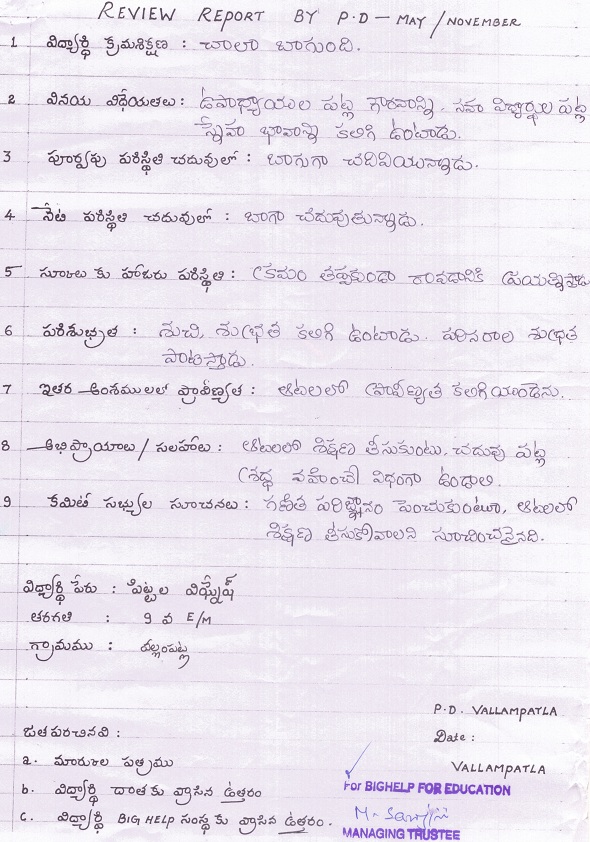 REVIEW REPORT BY P.D - MAY/NOVEMBER
1 విద్యార్థి క్రమశిక్షణ : చాలా బాగుంది.
2 వినయ విధేయతలు: ఉపాధ్యాయుల పట్ల గౌరవాన్ని. సహ విద్యార్థుల పట్ల
స్నేహ భావాన్ని కలిగి ఉంటాడు.
3 పూర్వపు పరిస్థితి చదువులో : బాగుగా చదివియున్నాడు.
4 నేటి పరిస్థితి చదువులో : బాగా చదువుతున్నాడు.
5 స్కూలు కు హాజరు పరిస్థితి: క్రమం తప్పకుండా రావడానికి ప్రయత్నిస్తాడు
6 పరిశుభ్రత : శుచి, శుభ్రత కలిగి ఉంటాడు. పరిసరాల శుభ్రత
పాటిస్తాడు.
7 ఇతర అంశములలో ప్రావీణ్యత : ఆటలలో ప్రావీణ్యత కలిగియుండెను.
8 అభిప్రాయాలు / సలహాలు : ఆటలలో శిక్షణ తీసుకుంటు, చదువు పట్ల
శ్రద్ధ వహించే విధంగా ఉండాలి.
9 కమిటీ సభ్యుల సూచనలు : గణిత పరిజ్ఞానం పెంచుకుంటూ, ఆటలలో
శిక్షణ తీసుకోవాలని సూచించనైనది.
విద్యార్థి పేరు : పిట్టల విఘ్నేష్
తరగతి : 9 వ E/M
గ్రామము : వల్లంపట్ల
P.D. VALLAMPATLA
జతపరచినవి :
Date :
a. మార్కుల పత్రము
VALLAMPATLA
b. విద్యార్థి దాతకు వ్రాసిన ఉత్తరం
For BIGHELP FOR EDUCATION
c. విద్యార్థి BIG HELP సంస్థ కు వ్రాసిన ఉత్తరం.
MANAGING TRUSTEE